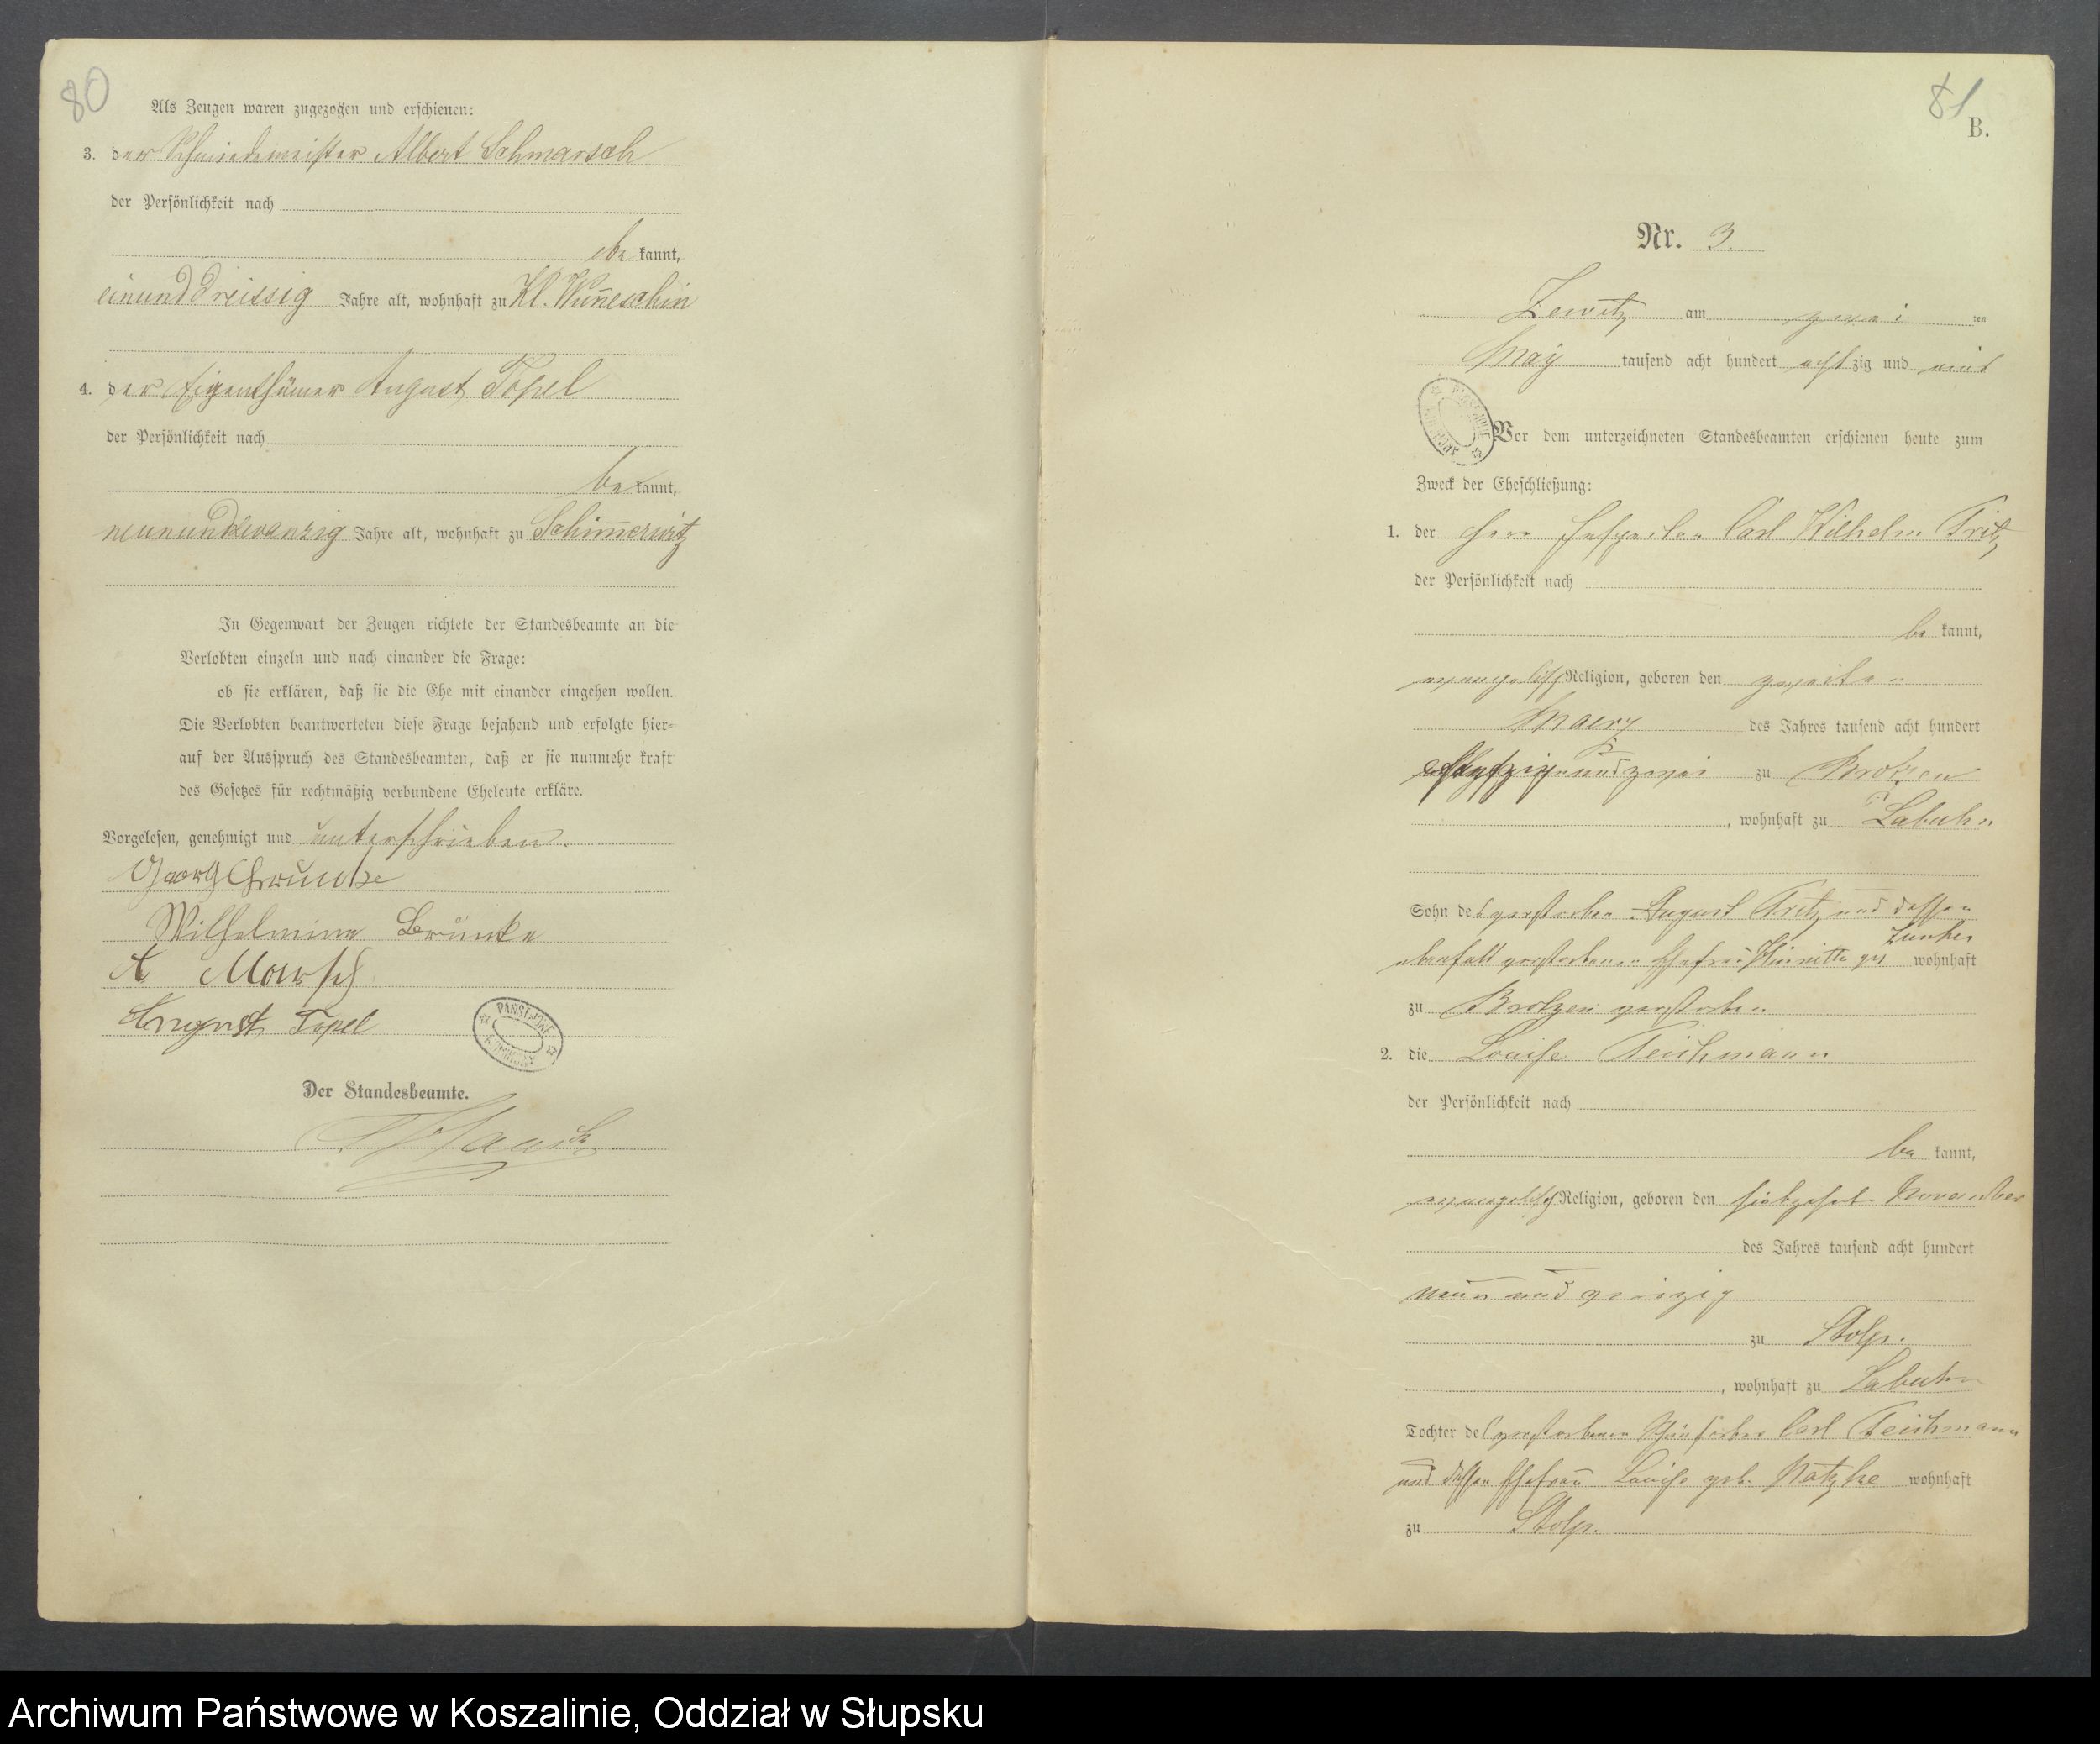 80
Als Zeugen waren zugezogen und erschienen:
3. der Schmiedemeister Albert Schmarsch
der Persönlichkeit nach
be kannt,
einunddreissig Jahre alt, wohnhaft zu Kl. Wunneschin
4. der Eigenthümer August Topel
der Persönlichkeit nach
be kannt,
neunundzwanzig Jahre alt, wohnhaft zu Schimmerwitz
In Gegenwart der Zeugen richtete der Standesbeamte an die
Verlobten einzeln und nach einander die Frage:
ob sie erklären, daß sie die Ehe mit einander eingehen wollen.
Die Verlobten beantworteten diese Frage bejahend und erfolgte hier-
auf der Ausspruch des Standesbeamten, daß er sie nunmehr kraft
des Gesetzes für rechtmäßig verbundene Eheleute erkläre.
Vorgelesen, genehmigt und unterschrieben.
Georg
Wilhelmine
A Marsch
August Topel
Der Standesbeamte.
81
B.
Nr. 3.
Zewitz am zwei ten
May tausend acht hundert acht zig und eins
Vor dem unterzeichneten Standesbeamten erschienen heute zum
Zweck der Eheschließung:
1. der Herr Inspector Carl Wilhelm Fritz
der Persönlichkeit nach
be kannt,
evangelisch Religion, geboren den zweiten
Maerz des Jahres tausend acht hundert
und zwei zu Brotzen
, wohnhaft zu Labuhn
Sohn des verstorben August Fritz und dessen
ebenfalls verstorbenen Ehefrau geb Zunker wohnhaft
zu Brotzen verstorben
2. die Louise Teichmann
der Persönlichkeit nach
be kannt,
evangelisch Religion, geboren den siebzehnt November
des Jahres tausend acht hundert
neun und
zu Stolp.
, wohnhaft zu Labuhn
Tochter des verstorbenen Schönfärber Carl Teichmann
und dessen Ehefrau Louise geb. Natzke wohnhaft
zu Stolp.
Archiwum Państwowe w Koszalinie, Oddział w Słupsku